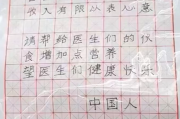 收入有限以表心意
请帮给医生们的伙
食增加点营养
望医生们健康快乐
中国人